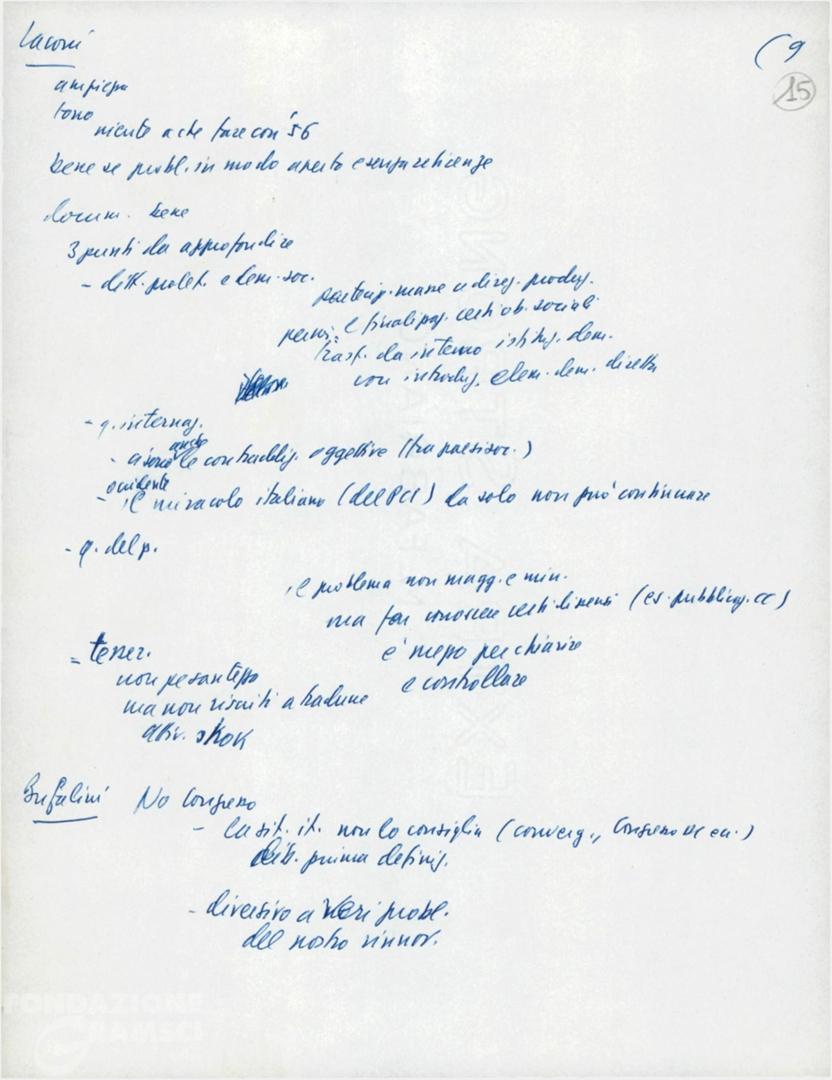 Laconi
( 9
15
ampiezza
tono
niente a che fare con '56
bene se probl. in modo aperto e senza reticenze
docum. bene
3 punti da approfondire
- ditt. prolet. e dem. soc.
partecip. masse a direz. produz.
e finalizzaz. certi ob. sociali
trasf. da interno istituz. dem.
con introduz. elem. dem. diretta
- q. internaz.
- ci sono anche le contraddiz. oggettive (tra paesi soc.)
occidente
- il miracolo italiano (del PCI) da solo non può continuare
- q. del p.
il problema non magg. e min.
ma far conoscere certi dissensi (es. pubblicaz. CC)
è mezzo per chiarire
e controllare
= tesser.
non pesantezza
ma non riusciti a tradurre
attiv. shok
Bufalini No Congresso
- la sit. it. non lo consiglia (converg., Congresso DC ecc.)
dib. prima defining.
- diversivo a veri probl.
del nostro rinnov.
FONDAZIONE
GRAMSCI